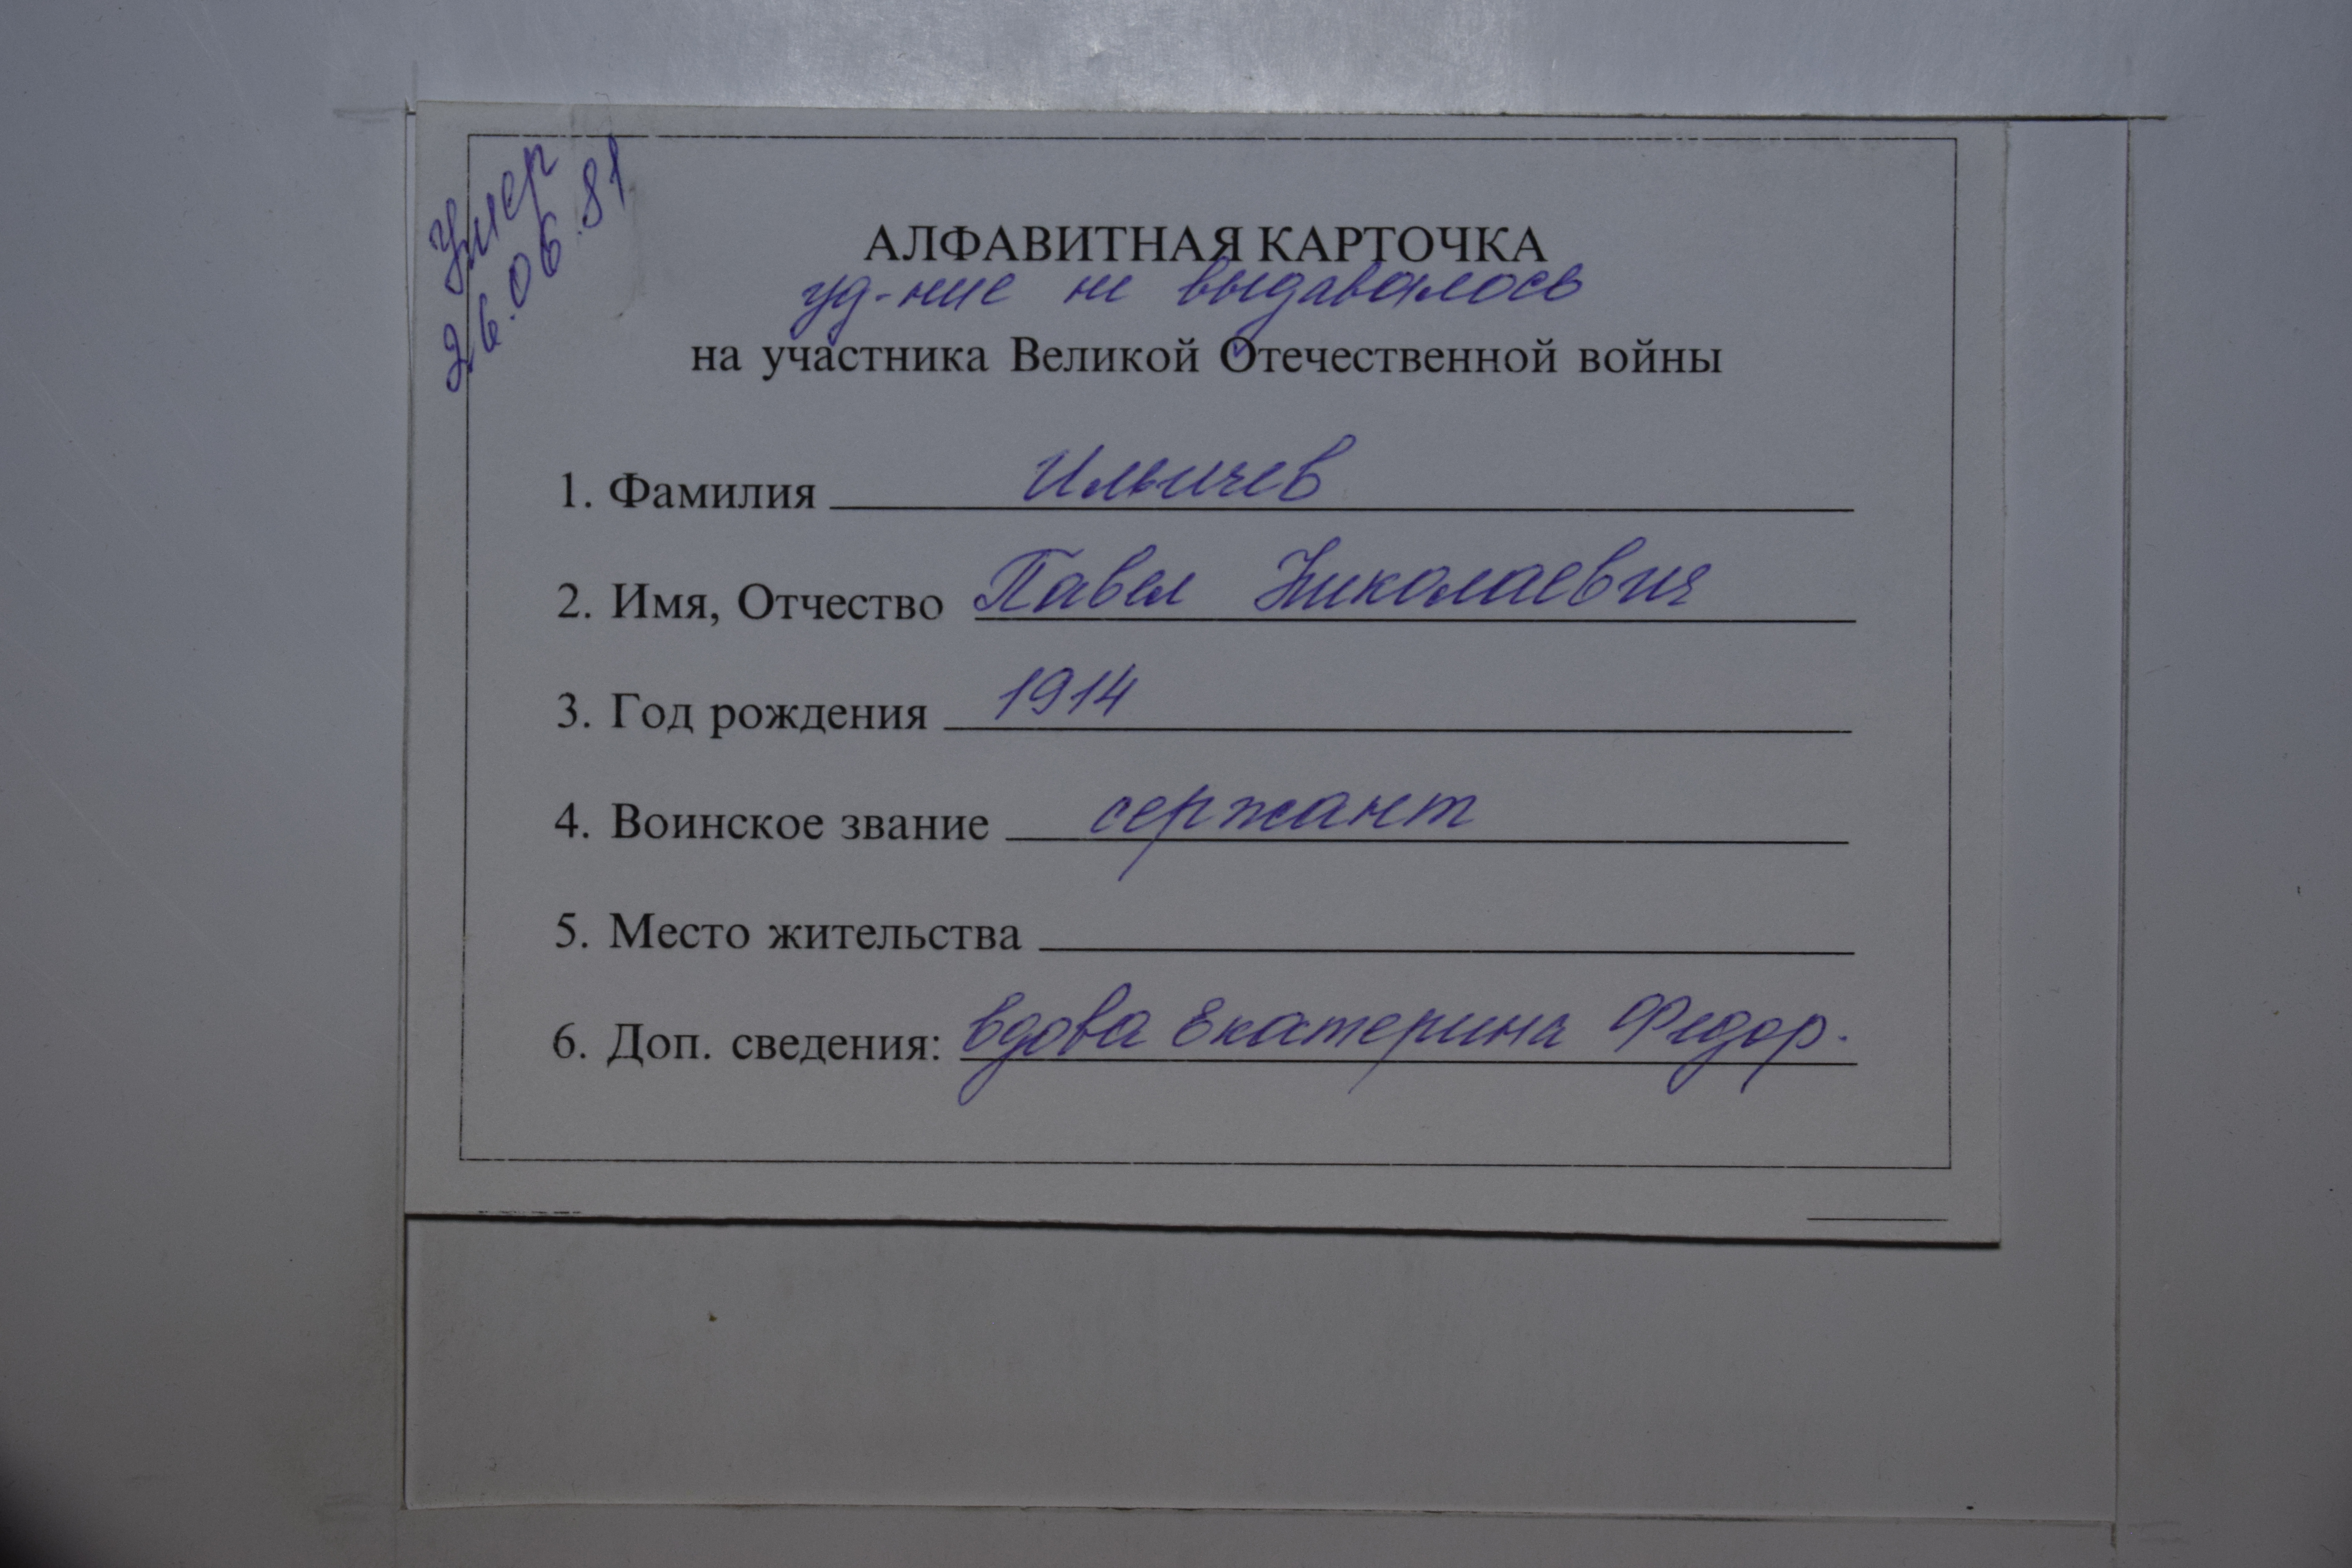 Умер
26.06.81
АЛФАВИТНАЯ КАРТОЧКА
уд-ние не выдавалось
на участника Великой Отечественной войны
1. Фамилия Ильичев
2. Имя, Отчество Павел Николаевич
3. Год рождения 1914
4. Воинское звание сержант
5. Место жительства
6. Доп. сведения: вдова Екатерина Федор.